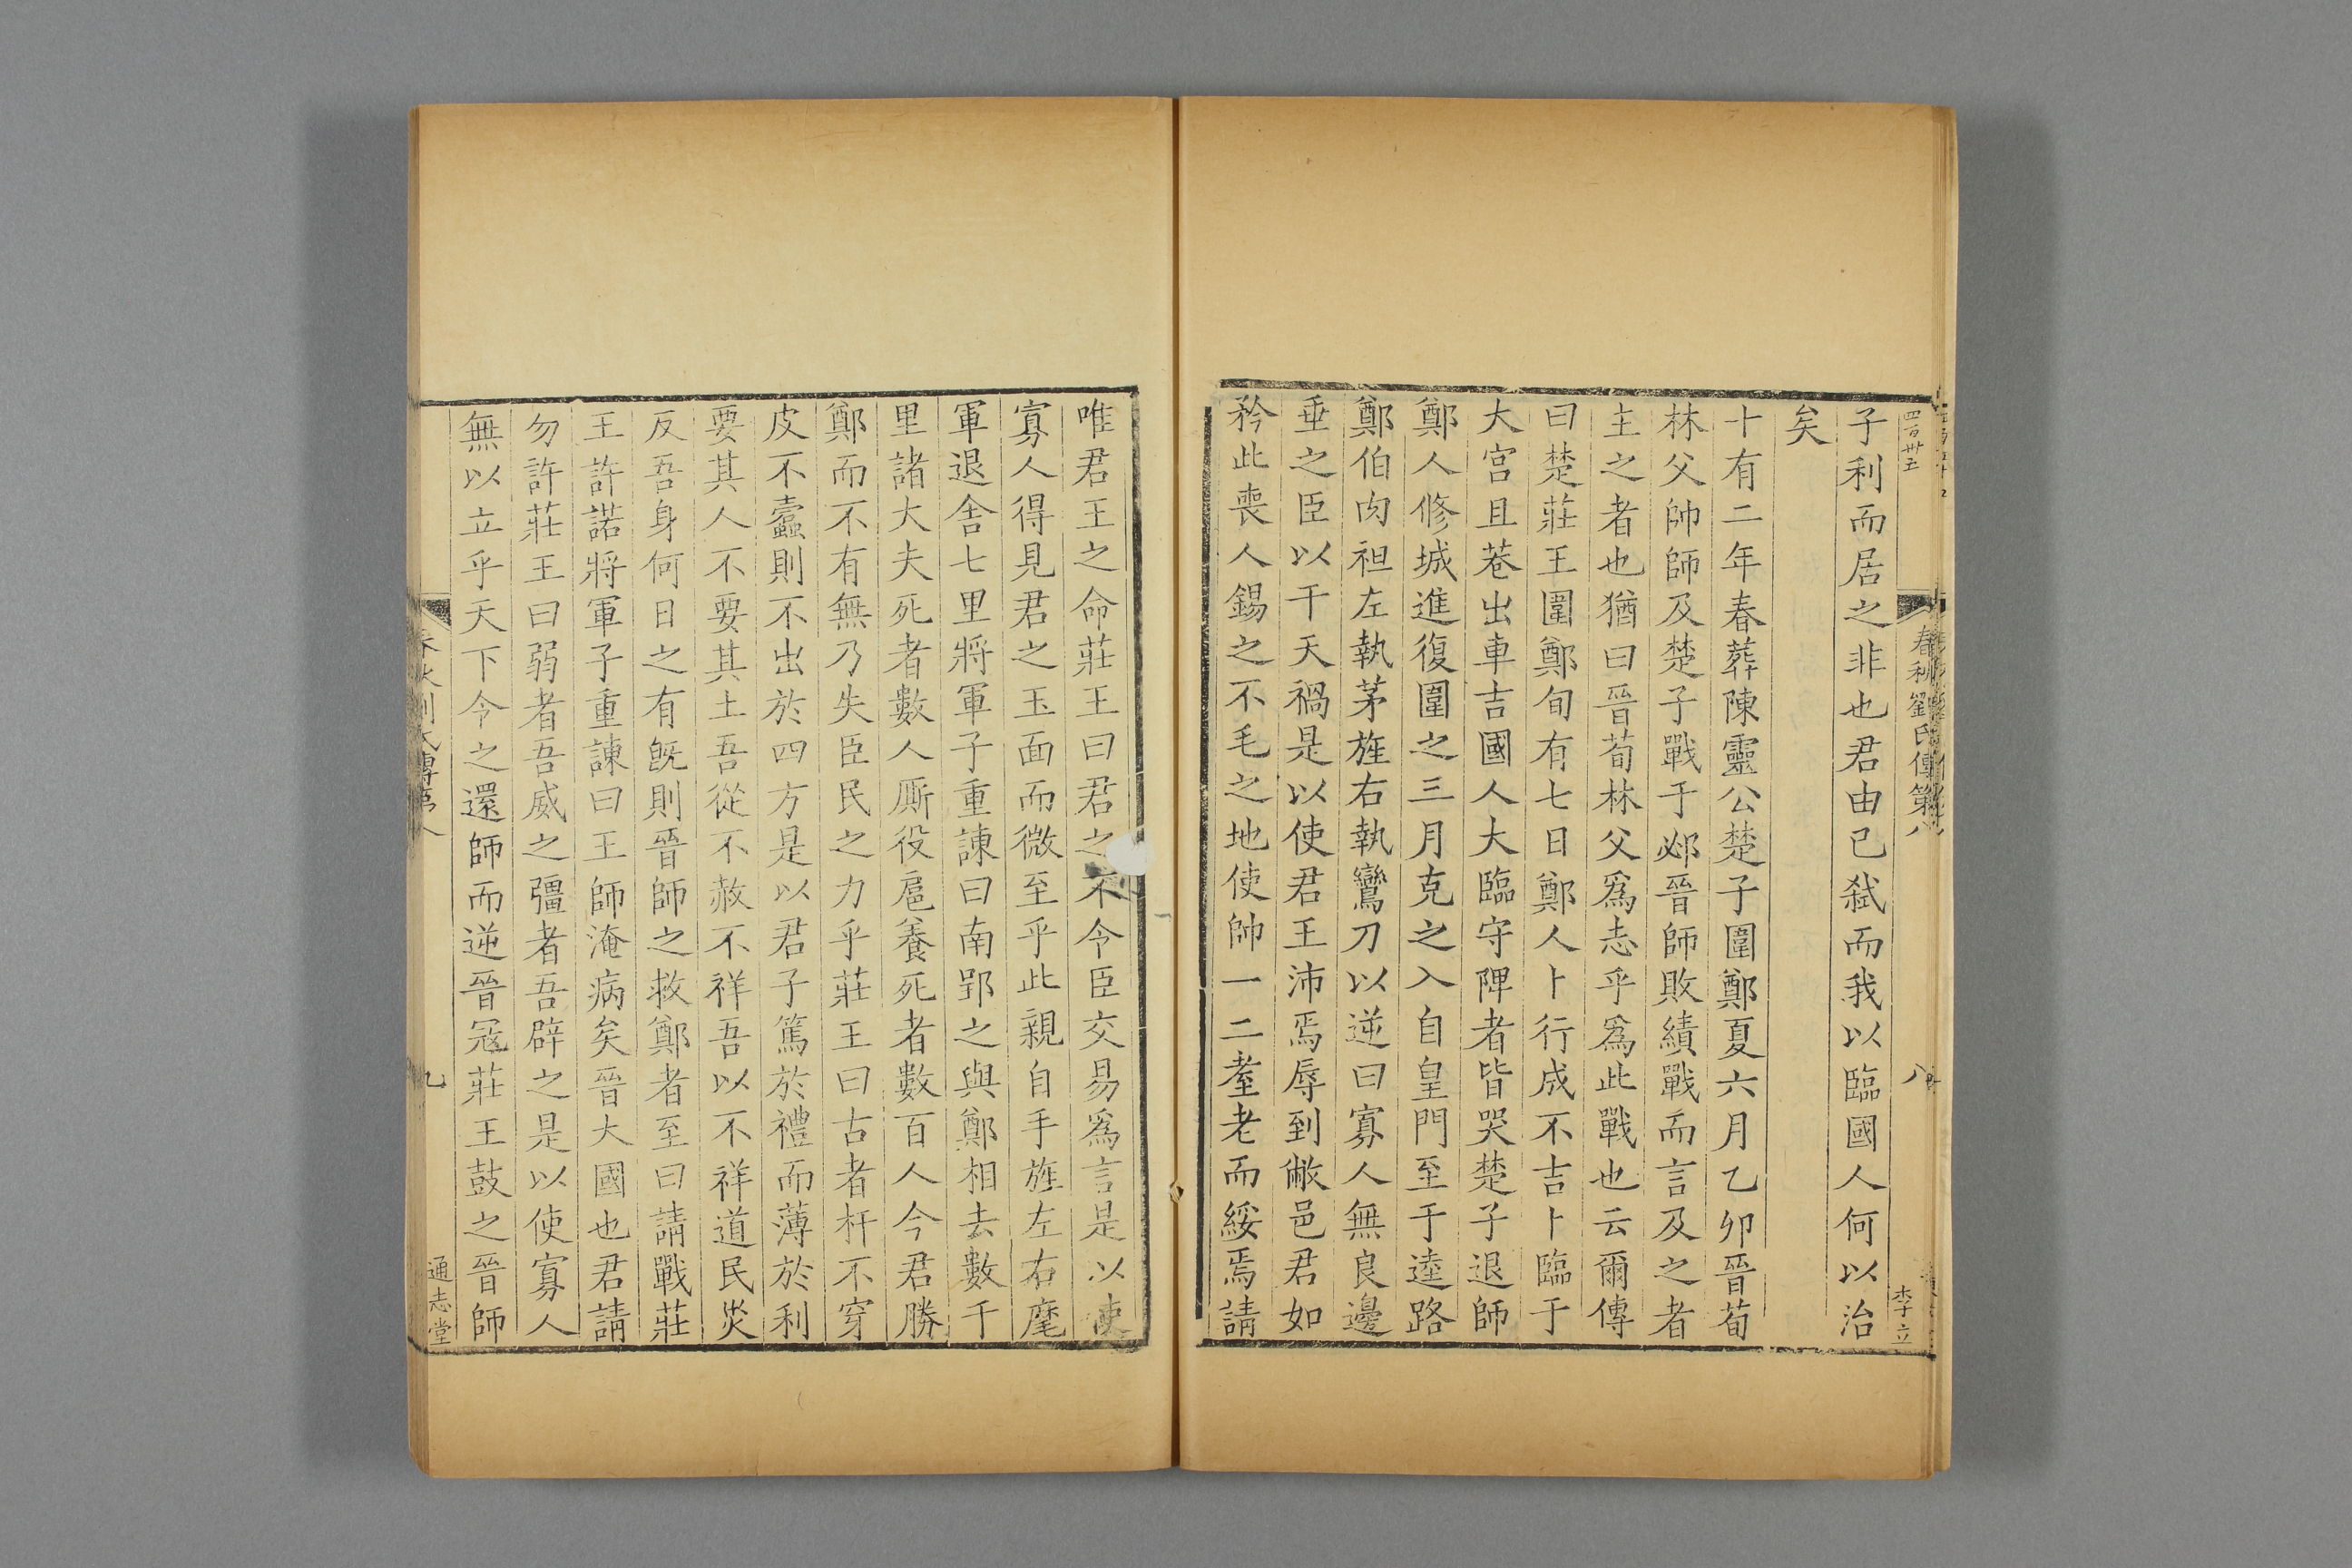 四百卅五
春秋劉氏傳第八
八
李立
子利而居之非也君由已弑而我以臨國人何以治
矣
十有二年春葬陳靈公楚子圍鄭夏六月乙卯晉荀
林父帥師及楚子戰于邲晉師敗績戰而言及之者
主之者也猶曰晉荀林父爲志乎爲此戰也云爾傳
曰楚莊王圍鄭旬有七日鄭人卜行成不吉卜臨于
大宫且巷出車吉國人大臨守陴者皆哭楚子退師
鄭人修城進復圍之三月克之入自皇門至于逵路
鄭伯肉袒左執茅旌右執鸞刀以逆曰寡人無良邊
垂之臣以干天禍是以使君王沛焉辱到敝邑君如
矜此喪人錫之不毛之地使帥一二耋老而綏焉請
唯君王之命莊王曰君之不令臣交易爲言是以使
寡人得見君之玉面而微至乎此親自手旌左右麾
軍退舍七里將軍子重諫曰南郢之與鄭相去數千
里諸大夫死者數人厮役扈養死者數百人今君勝
鄭而不有無乃失臣民之力乎莊王曰古者杅不穿
皮不蠹則不出於四方是以君子篤於禮而薄於利
要其人不要其土吾從不赦不祥吾以不祥道民烖
及吾身何日之有旣則晉師之救鄭者至曰請戰莊
王許諾將軍子重諫曰王師淹病矣晉大國也君請
勿許莊王曰弱者吾威之彊者吾辟之是以使寡人
無以立乎天下令之還師而逆晉寇莊王鼓之晉師
春秋劉氏傳第八
九
通志堂